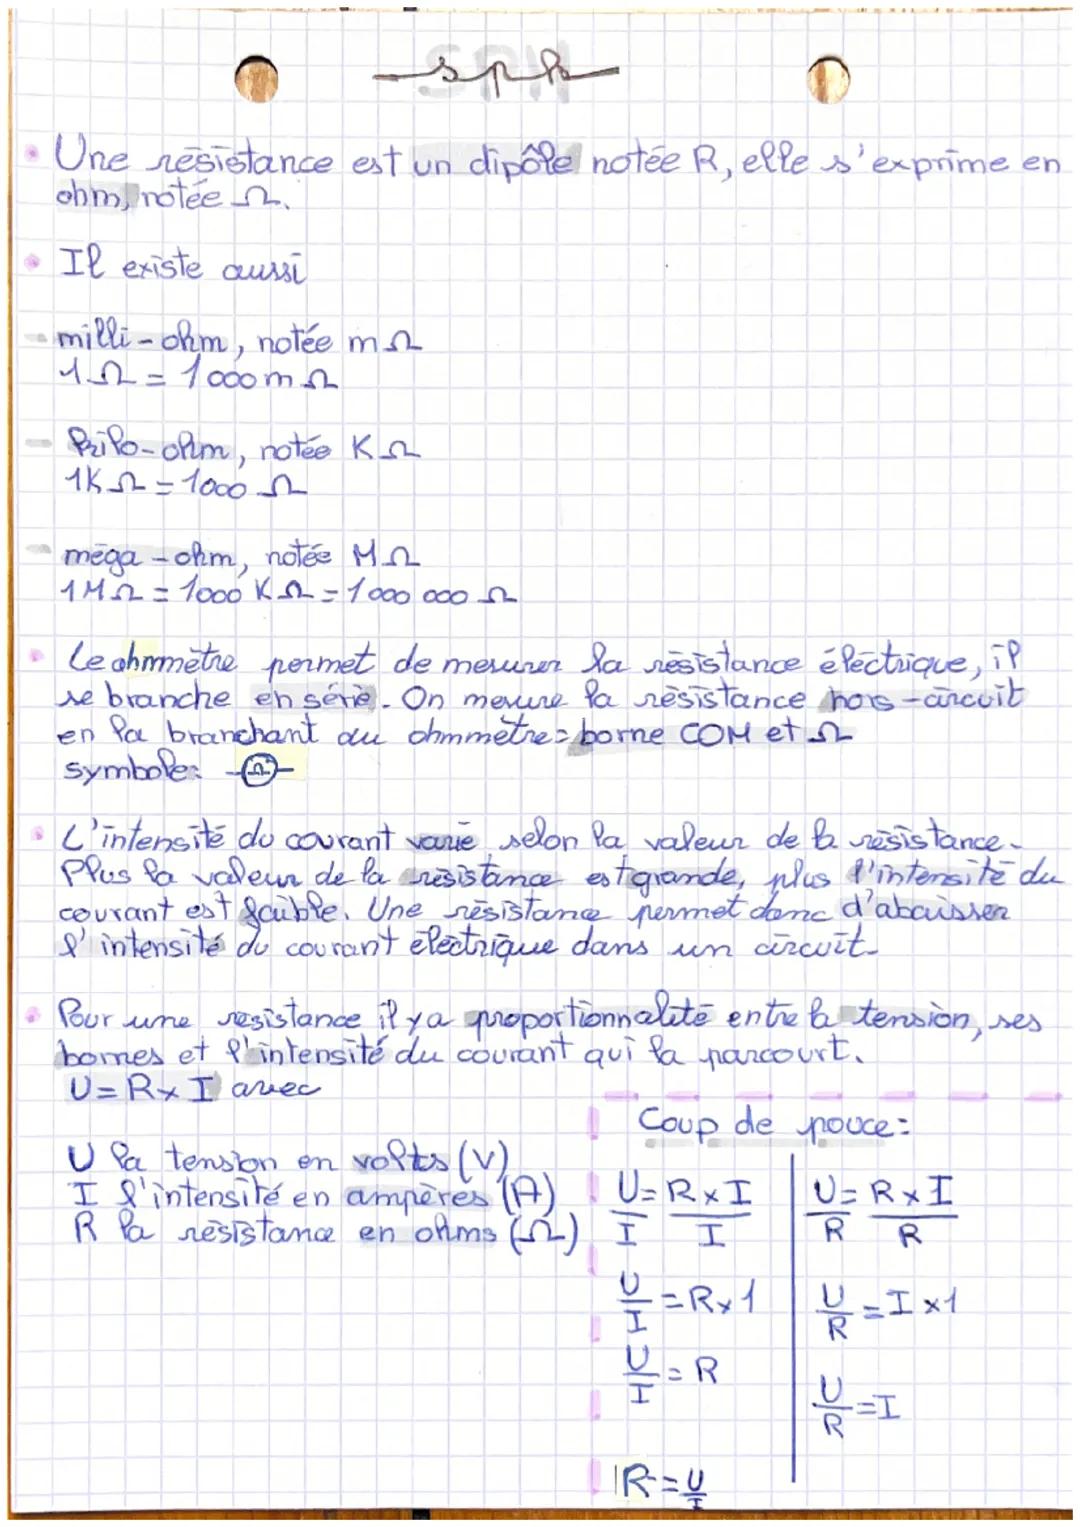 sph
• Une résistance est un dipôle notée R, elle s'exprime en
ohm, notée Ω.
• Il existe aussi
- milli-ohm, notée mΩ
1Ω = 1000mΩ
- kilo-ohm, notée KΩ
1KΩ = 1000 Ω
- méga-ohm, notée MΩ
1MΩ = 1000 KΩ = 1 000 000 Ω
• Le ohmmètre permet de mesurer la résistance électrique, il
se branche en série. On mesure la résistance hors-circuit
en la branchant au ohmmètre = borne COM et Ω
symbole: -Ω-
• L'intensité du courant varie selon la valeur de la résistance.
Plus la valeur de la résistance est grande, plus l'intensité du
courant est faible. Une résistance permet donc d'abaisser
l'intensité du courant électrique dans un circuit.
• Pour une resistance il y a proportionnalité entre la tension, ses
bornes et l'intensité du courant qui la parcourt.
U = R x I avec
U la tension en volts (V)
I l'intensité en ampères (A)
R la résistance en ohms (Ω)
Coup de pouce:
U = R x I
I I
U/I = R x 1
U/I = R
R = U/I
U = R x I
R R
U/R = I x 1
U/R = I